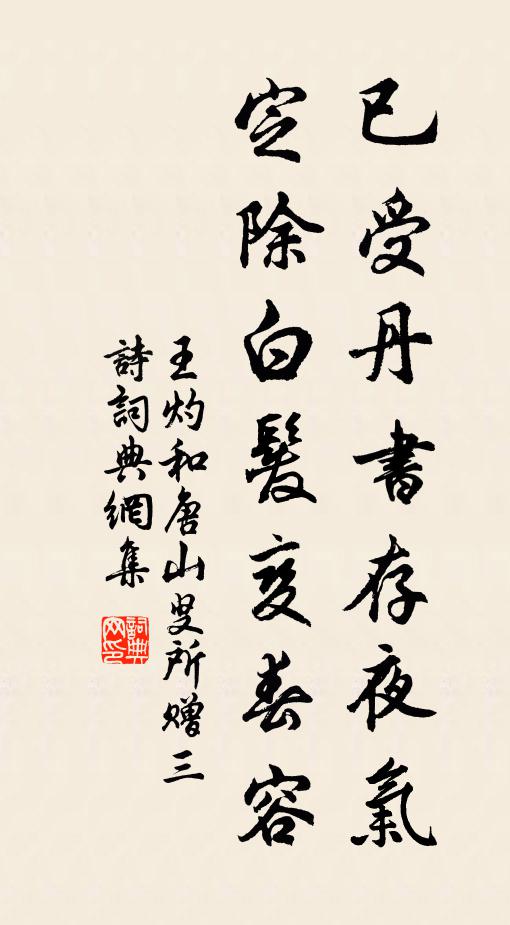 已受丹書存夜氣
定除白髮变春容
王灼和唐山叟所赠三
詩詞典網集
詞典网印